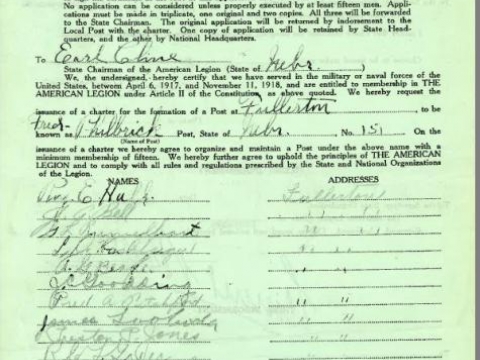 No application can be considered unless properly executed by at least fifteen men. Appli-
cations must be made in triplicate, one original and two copies. All three will be forwarded
to the State Chairman. The original application will be returned by indorsement to the
Local Post with the charter. One copy of application will be retained by State Head-
quarters, and the other by National Headquarters.
To Earl Cline
State Chairman of the American Legion (State of Nebr.)
We, the undersigned, hereby certify that we have served in the military or naval forces of the
United States, between April 6, 1917, and November 11, 1918, and are entitled to membership in THE
AMERICAN LEGION under Article II of the Constitution, as above quoted. We hereby request the
issuance of a charter for the formation of a Post at Fullerton to be
known as Post, State of Nebr. No. 151 On the
(Name of Post)
issuance of a charter we hereby agree to organize and maintain a Post under the above name with a
minimum membership of fifteen. We hereby further agree to uphold the principles of THE AMERICAN
LEGION and to comply with all rules and regulations prescribed by the State and National Organizations
of the Legion.
NAMES ADDRESSES
Fullerton
" "
" "
" "
" "
J. Gooding " "
Fred A. " "
James " "
Jones " "